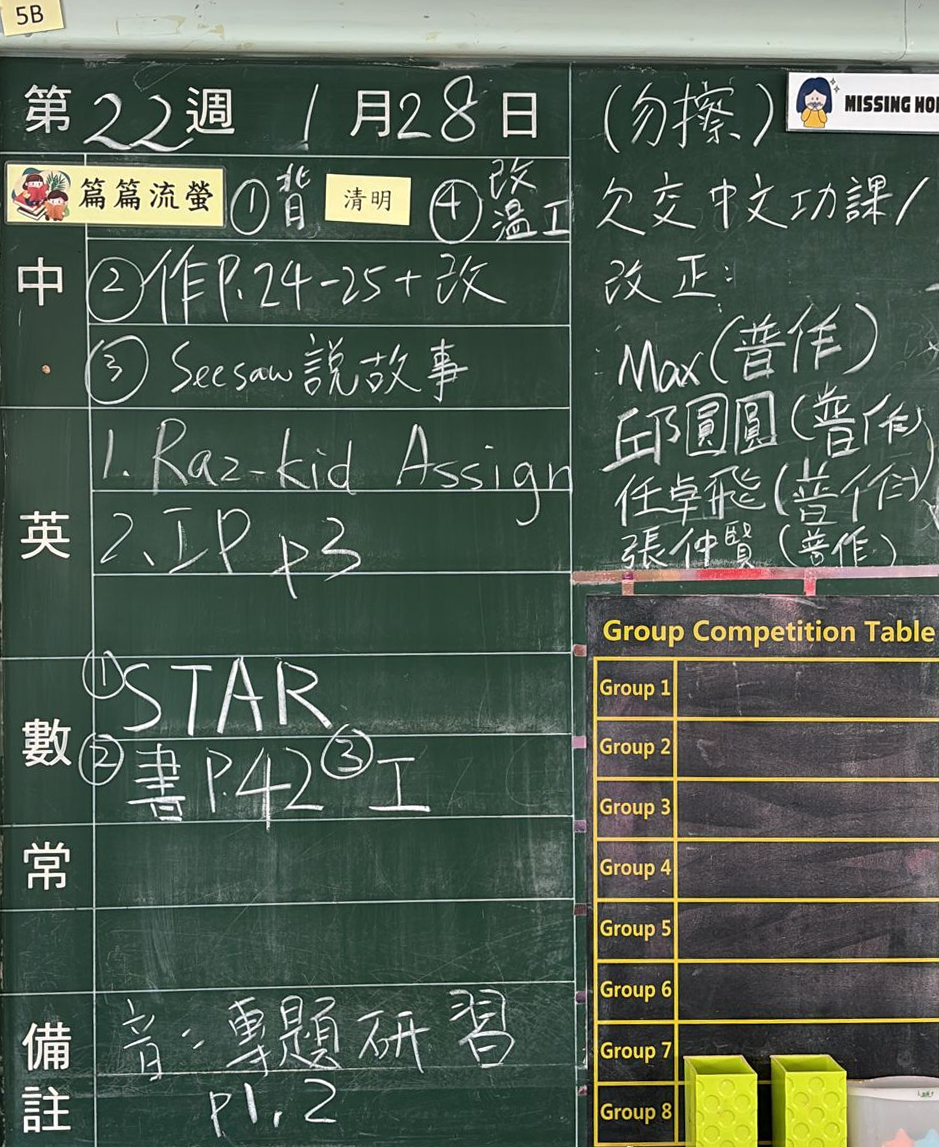 5B
第22週 1月28日
篇篇流螢 ①背 清明 ④改溫工
中
②作P.24-25+改
③Seesaw說故事
英
1. Raz-kid Assign
2. IP p3
數
①STAR
②書P.42 ③工
常
備註
音:專題研習
p1,2
(勿擦)
MISSING
欠交中文功課/
改正:
Max(普作)
邱圓圓(普作)
任卓飛(普作)
張仲賢(普作)
Group Competition Table
Group 1
Group 2
Group 3
Group 4
Group 5
Group 6
Group 7
Group 8